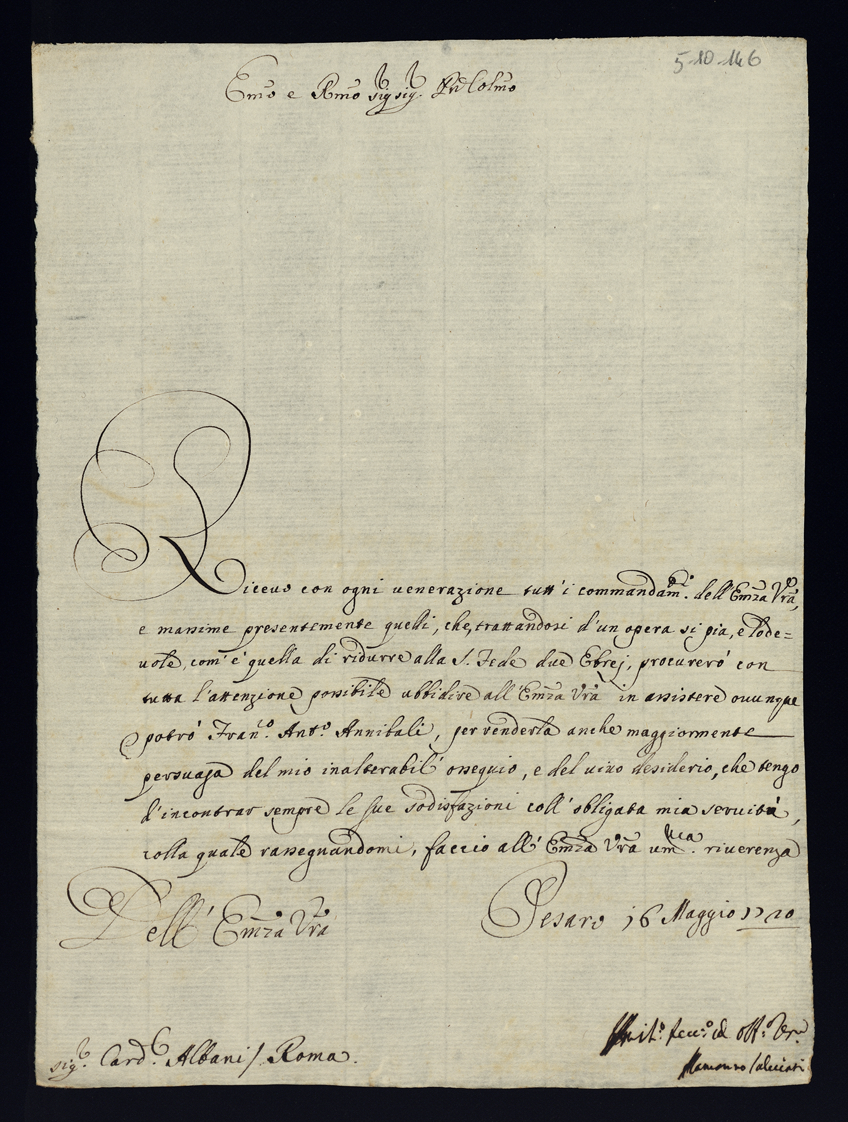 5-10-146
Emo e Rmo Sig Sig. Pñ Colmo
Riceuo con ogni uenerazione tutt'i commandam.ti dell'Emza Vra,
e massime presentemente quelli, che, trattandosi d'un opera si pia, e lode=
uole, com'è quella di ridurre alla S. Fede due Ebrej, procurerò con
tutta l'attenzione possibile ubbidire all'Emza Vra in assistere ouunque
potrò Fran.o Ant.o Annibali, per renderla anche maggiormente
persuasa del mio inalterabil' ossequio, e del uiuo desiderio, che tengo
d'incontrar sempre le sue sodisfazioni coll'obligata mia seruitù,
colla quale rassegnandomi, faccio all'Emza Vra um.ma riuerenza
Dell'Emza Vra
Pesaro 16 Maggio 1720
Sig.r Card.l Albani / Roma.